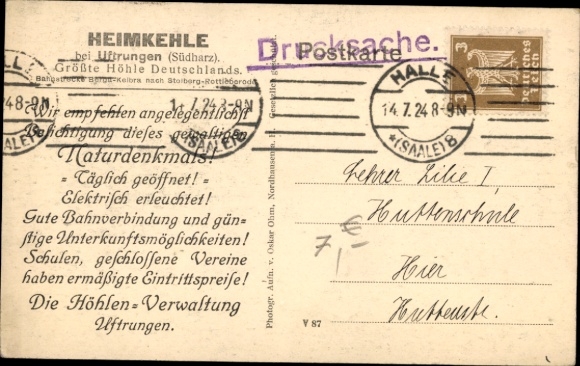 HEIMKEHLE
bei Uftrungen (Südharz).
Größte Höhle Deutschlands.
Bahnstrecke Berga-Kelbra nach Stolberg-Rottleberode
Wir empfehlen angelegentlichst
Besichtigung dieses gewaltigen
Naturdenkmals!
- Täglich geöffnet! -
- Elektrisch erleuchtet! -
Gute Bahnverbindung und gün-
stige Unterkunftsmöglichkeiten!
Schulen, geschlossene Vereine
haben ermäßigte Eintrittspreise!
Die Höhlen-Verwaltung
Uftrungen.
Photogr. Aufn. v. Oskar Ohm, Nordhausen a. H. Gesetzlich
Drucksache.
Postkarte
3
Deutsches
Reich
HALLE
14.7.24.8-9N
*(SAALE)8
HALLE
14.7.24.8-9N
*(SAALE)8
Lehrer Lilie I,
Huttenschule
Hier
Huttenstr.
7,-
€
V 87